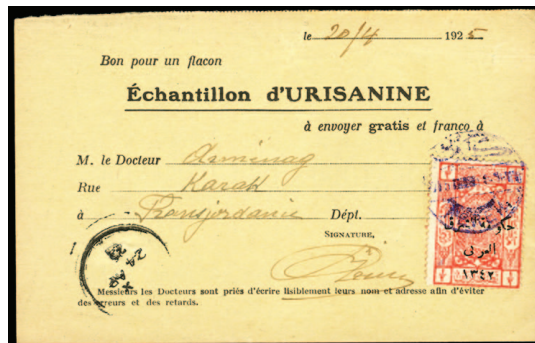 le 20/4 1925
Bon pour un flacon
Échantillon d'URISANINE
à envoyer gratis et franco à
M. le Docteur Arminag
Rue Karak
à Transjordanie Dépt.
SIGNATURE,
العربى
١٣٤٢
Messieurs les Docteurs sont priés d'écrire lisiblement leurs nom et adresse afin d'éviter
des erreurs et des retards.